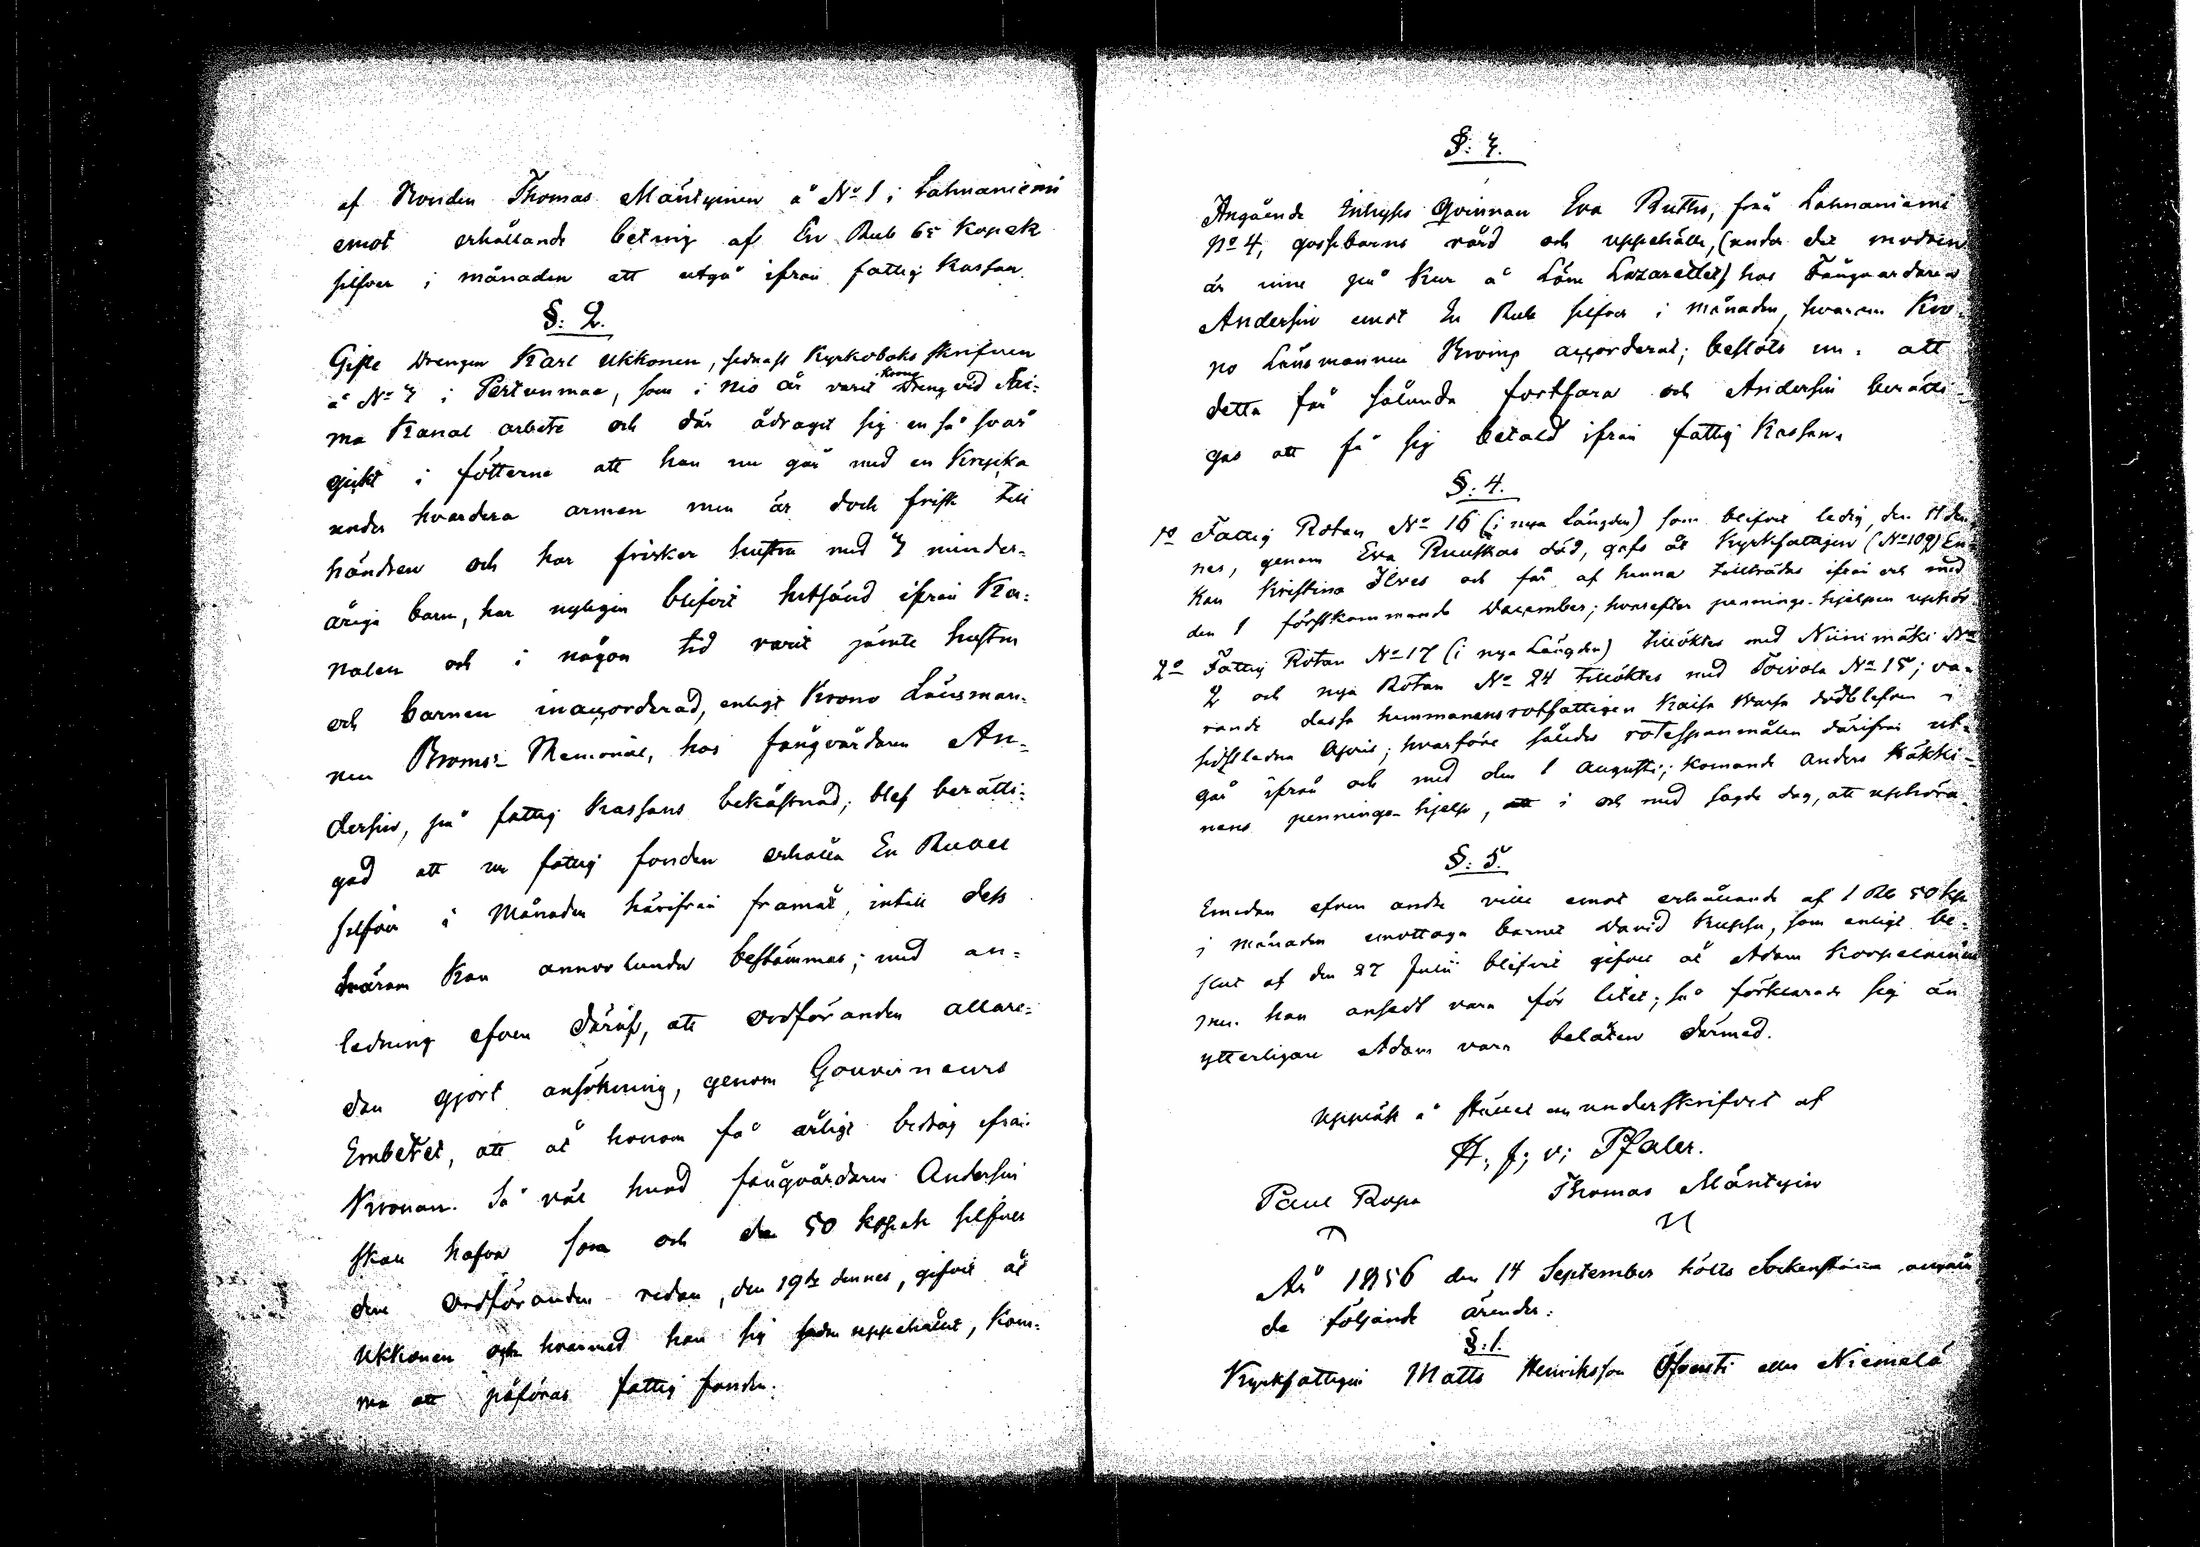 af Bonden Thomas Mäntyinen å No 1 i Lahnaniemi
emot erhållande beting af En Rub 65 Kopek
silfver i månaden att utgå ifrån fattig Kassan.
§: 2.
Gifte Drengen Karl Ukkonen, sednast Kyrkoboks skrifven
å No 3 i Pertunmaa, som i nio år varit Krono Dreng vid Sai-
ma Kanal arbete och där ådragit sig en så svår
gickt i fötterne att han nu går med en Krycka
under hvardera armen men är doch frisk till
händren och har frisker hustru med 3 minder-
åriga barn, har nyligen blifvit hitsänd ifrån Ka-
nalen och i någon tid varit jämte hustru
och barnen inaccorderad, enligt Krono Länsman-
nen Broms's Memorial, hos fångvårdaren An-
dersin, på fattig Kassans bekåstnad; blef berätti-
gad att ur fattig fonden erhålla En Rubel
silfver i Månaden härifrån framåt, intill dess
härom Kan annorlunda bestämmas; med an-
ledning efven däraf, att ordföranden allare-
dan gjort ansökning, genom Gouverneurs
Embetet, att åt honom få årligt bidrag ifrån
Kronan. Så väl hvad fångvårdaren Andersin
skall hafva som och de 50 kopek silfver
dem Ordföranden redan, den 19de dennes, gifvit åt
Ukkonen och hvarmed han sig sedan uppehållit, Kom-
ma att påföras fattig fonden.
§: 3.
Angående Inhyses Qvinnan Eva Ruths, från Lahnaniemi
No 4, gossebarns vård och uppehälle, (under det modren
är inne på Kur å Läns Lazarettet) hos Fångvårdaren
Andersin emot En Rub silfver i månaden, hvarom Kro-
no Länsmannen Broms accorderat; beslöts nu: att
detta får sålunda fortfara och Andersin berätti-
gas att få sig betald ifrån fattig Kassan.
§: 4.
1o Fattig Rotan No 16 (i nya Längden) som blifvit ledig, den 11 den-
nes, genom Eva Ruuskas död, gafs åt Kyrkfattigen (No 109) En-
kan Kristina Ilves och får af henne tillträdas ifrån och med
den 1 förstkommande December; hvarefter pennings-hjelpen upphör.
2o Fattig Rotan No 17 (i nya Längden) tillöktes med Niinimäki No
2 och nya Rotan No 24 tillöktes med Toivola No 15; va-
rande dessa hemmanens rotfattigen Kaisa dödblefven i
sidstledne April; hvarföre således rotespannmålen därifrån ut-
går ifrån och med den 1 Augusti; Komande Anders Häkki-
nens pennings-hjelp, i och med sagde dag, att upphöra.
§: 5.
Emedan efven andre ville emot erhållande af 1 Rb 50 kop
i månaden emottaga barnet David Kuppu, som enligt be-
slut af den 27 Julii blifvit gifvit åt Adam Korpelainen
men han ansedt vara för litet; så förklarade sig än
ytterligare Adam vara belåten därmed.
Uppläst å stället och underskrifvit af
H; f; v; Pfaler.
Paul Ropa Thomas Mäntyin
År 1856 den 14 September hölts Sockenstämma angåen
de följande ärender:
§: 1.
Kyrkfattigen Matts Henriksson Öfverti eller Niemelä